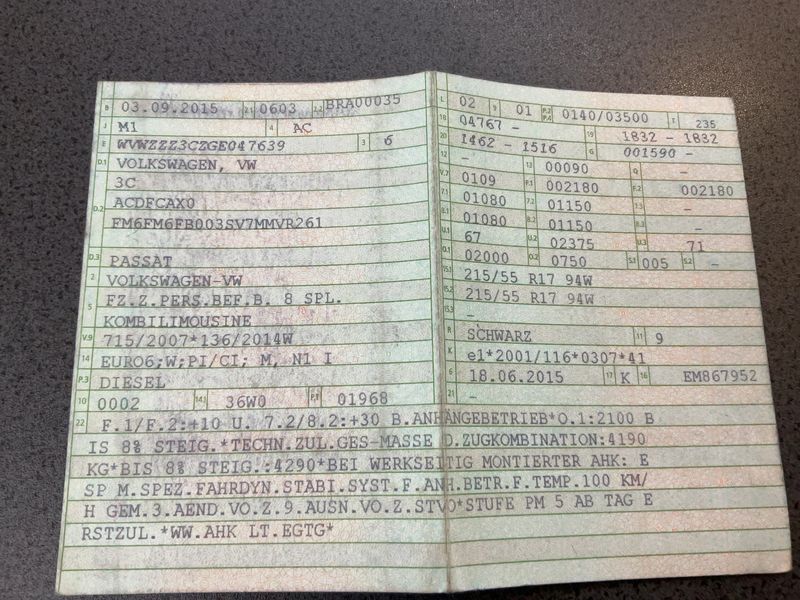 B 03.09.2015 2.1 0603 2.2 BRA00035
J M1 4 AC
E WVWZZZ3CZGE047639 3 6
D.1 VOLKSWAGEN, VW
3C
D.2 ACDFCAX0
FM6FM6FB003SV7MMVR261
D.3 PASSAT
2 VOLKSWAGEN-VW
5 FZ.Z.PERS.BEF.B. 8 SPL.
KOMBILIMOUSINE
V.9 715/2007*136/2014W
14 EURO6;W;PI/CI; M, N1 I
P.3 DIESEL
10 0002 14.1 36W0 P.1 01968
L 02 9 01 P.2 P.4 0140/03500 T 235
18 04767 - 19 1832 - 1832
20 1462 - 1516 G 001590 -
12 - 13 00090 Q -
V.7 0109 F.1 002180 F.2 002180
7.1 01080 7.2 01150 7.3 -
8.1 01080 8.2 01150 8.3 -
U.1 67 U.2 02375 U.3 71
O.1 02000 O.2 0750 S.1 005 S.2 -
15.1 215/55 R17 94W
15.2 215/55 R17 94W
15.3 -
R SCHWARZ 11 9
K e1*2001/116*0307*41
6 18.06.2015 17 K 16 EM867952
21 -
22 F.1/F.2:+10 U. 7.2/8.2:+30 B.ANHÄNGEBETRIEB*O.1:2100 B
IS 8% STEIG.*TECHN.ZUL.GES-MASSE D.ZUGKOMBINATION:4190
KG*BIS 8% STEIG.:4290*BEI WERKSEITIG MONTIERTER AHK: E
SP M.SPEZ.FAHRDYN.STABI.SYST.F.ANH.BETR.F.TEMP.100 KM/
H GEM.3.AEND.VO.Z.9.AUSN.VO.Z.STVO*STUFE PM 5 AB TAG E
RSTZUL.*WW.AHK LT.EGTG*